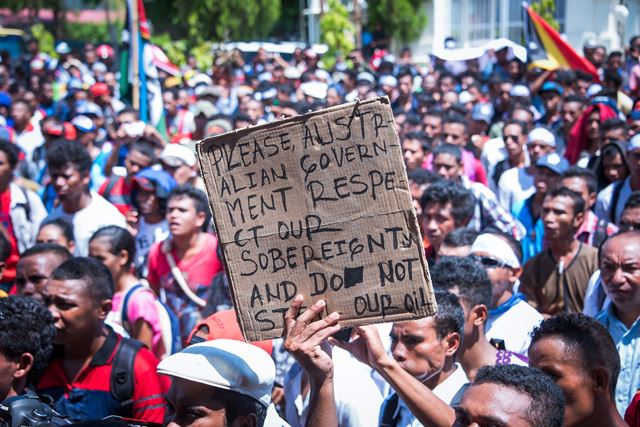 PLEASE, AUSTR-
ALIAN GOVERN-
MENT RESPE
CT OUR
SOBEREIGNTY
AND DO NOT
OUR OIL